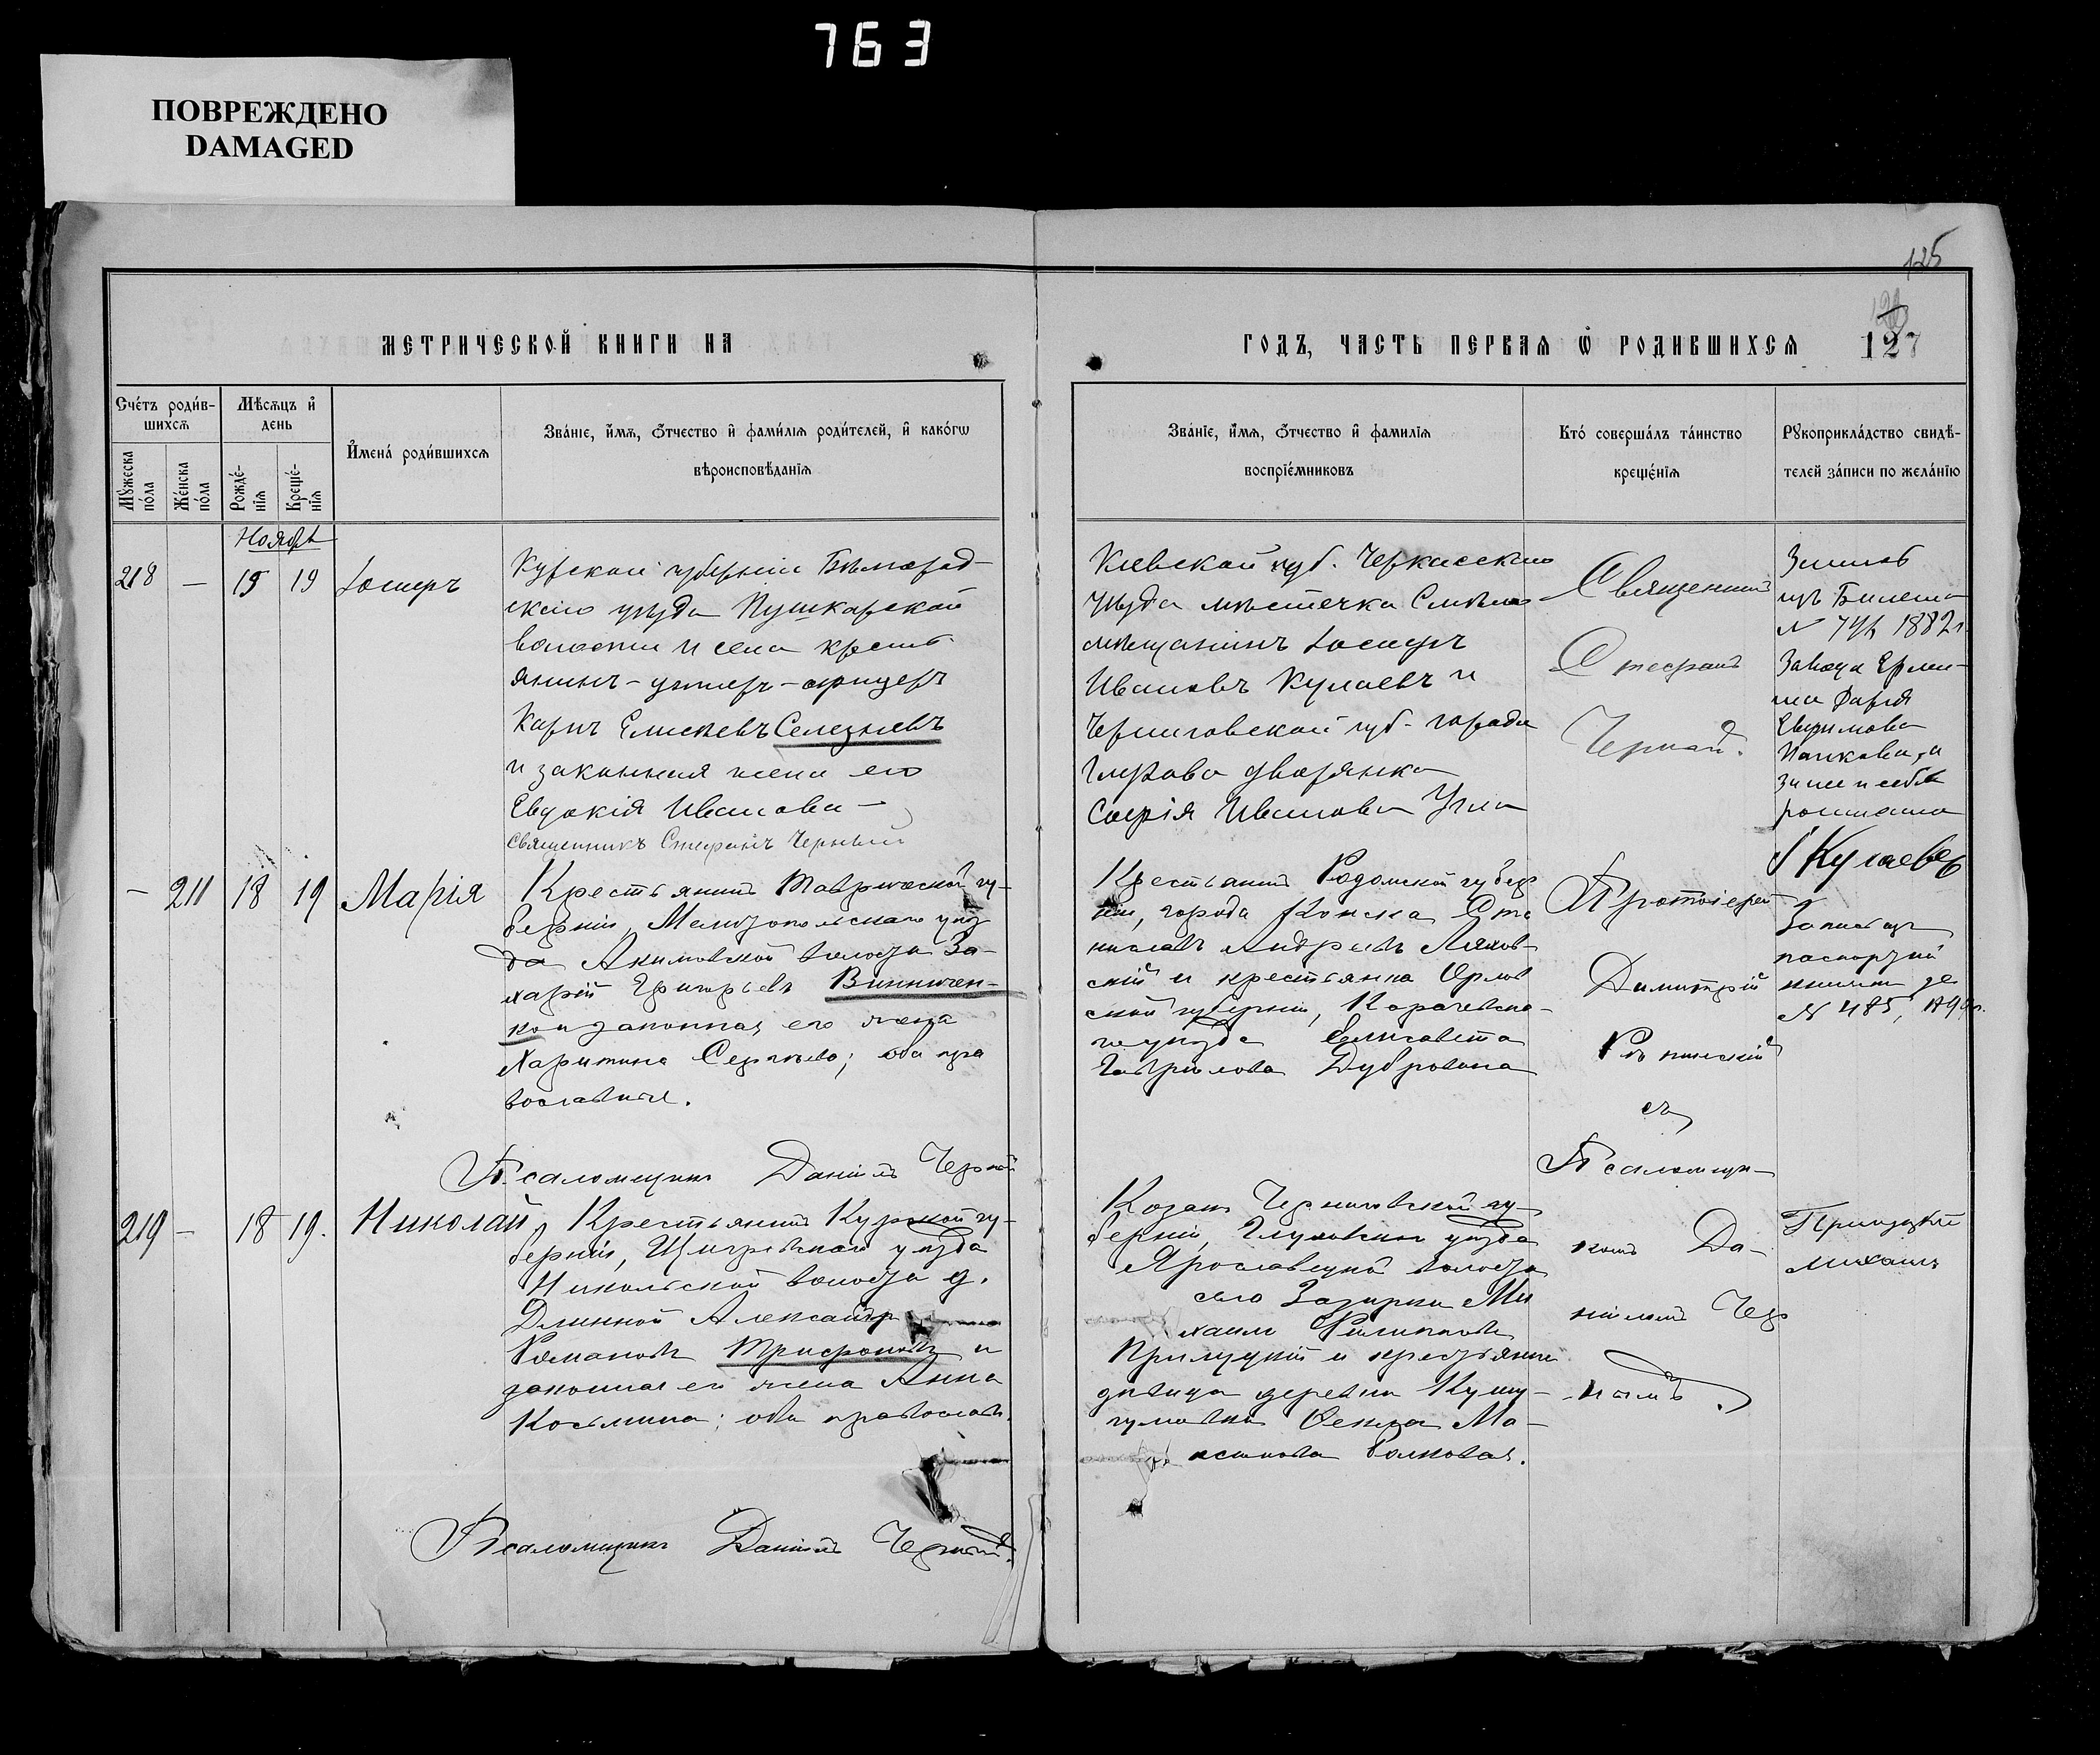 763
ПОВРЕЖДЕНО
DAMAGED
125
127
МЕТРИЧЕСКОЙ КНИГИ НА
ГОДЪ, ЧАСТЬ ПЕРВАЯ Ѡ РОДИВШИХСЯ
Счétъ родив-
шихся
Мужеска
пола
Женска
пола
Мѣсяцъ и
день
Рожде-
нія
Креще-
нія
Имена родившихся
Званіе, имя, отчество и фамилія родителей, и какогѡ
вѣроисповѣданія
Званіе, имя, отчество и фамилія
воспріемниковъ
Кто совершалъ таинство
крещенія
Рукоприкладство свидѣ-
телей записи по желанію
Ноябрь
218 — 15 19 Іосифъ
Курской губерніи Бѣлгород-
скаго уѣзда Пушкарской
волости и села кресть
янинъ-унтеръ-офицеръ
Карпъ Елисѣевъ Селезневъ
и законная жена его
Евдокія Иванова —
Священникъ Стефанъ Черный
Кіевской губ. Черкасскаго
уѣзда мѣстечка Смѣла
мѣщанинъ Іосифъ
Ивановъ Кулаевъ и
Черниговской губ. города
Глухова дворянка
Софія Иванова
Священник
Стефанъ
Черный.
билета
1882 г.
Дарія
Евфимова
за нее и себя
Кулаевъ
— 211 18 19 Марія
Крестьянинъ Таврической гу-
берніи, Мелитопольскаго уѣз
да Акимовской волости За-
харій Григорьевъ Винничен-
ко и законная его жена
Харитина Сергѣева; оба пра
вославные.
Псаломщикъ Даніилъ Черный
Крестьянинъ Радомской губер
ніи, города Конска Ста
ниславъ Андреевъ Ляхов-
скій и крестьянка Орлов
ской губерніи, Карачевска-
го уѣзда Елисавета
Гаврилова Дубровина
Протоіерей
Димитрій
съ
Псаломщи-
комъ Да-
ніиломъ Чер
нымъ.
паспортной
книжки
№ 485,
219 — 18 19. Николай
Крестьянинъ Курской гу-
берніи, Щигровскаго уѣзда
Никольской волости д.
Длинной Александръ
Романовъ Трифоновъ и
законная его жена Анна
Косьмина; оба православн.
Псаломщикъ Даніилъ Черный.
Козакъ Черниговской гу-
берніи, Глуховскаго уѣзда
Ярославецкой волости
села Зазирки Ми
хаилъ Филипповъ
Прилуцкій и крестьянка
дѣвица деревни Кушу-
гумовки Ксенія Ма-
Волковая.
Прилуцкій
Михаилъ